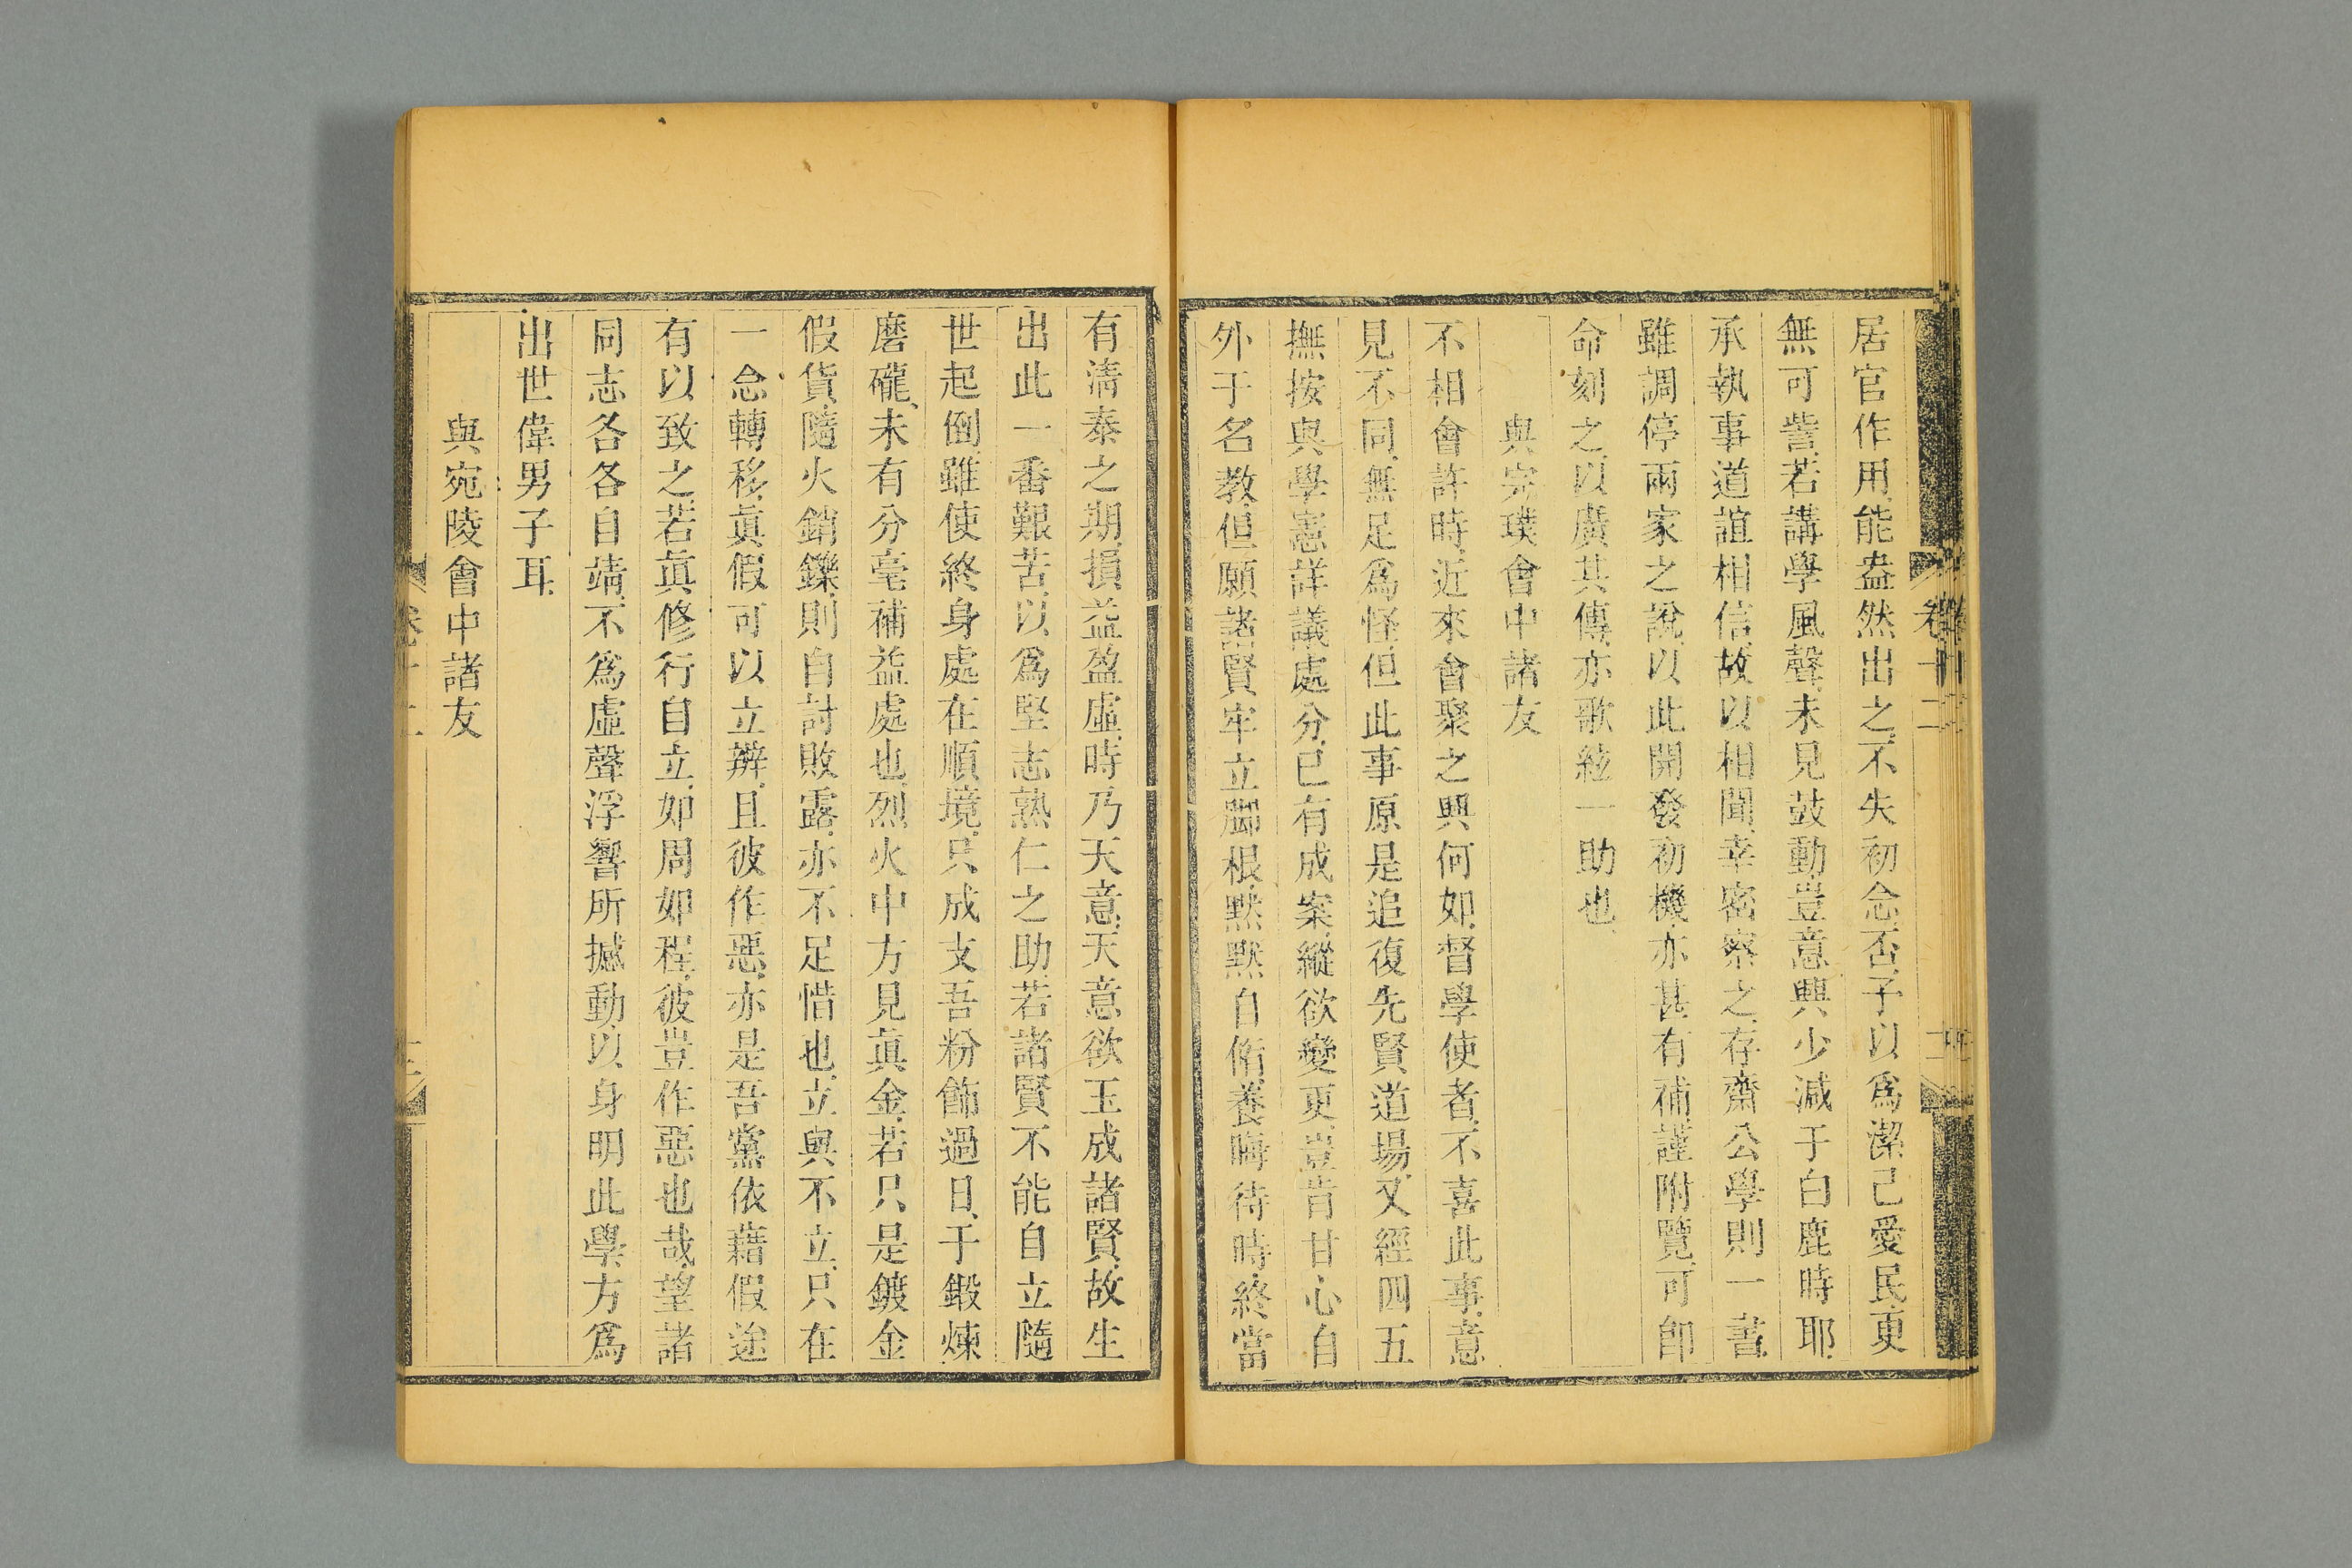 居官作用能盎然出之不失初念否子以爲潔己愛民更
無可訾若講學風聲未見鼓動豈意興少減于白鹿時耶
承執事道誼相信故以相聞幸密察之存齋公學則一書
雖調停兩家之說以此開發初機亦甚有補謹附覽可卽
命刻之以廣其傳亦歌絃一助也
與完璞會中諸友
不相會許時近來會聚之興何如督學使者不喜此事意
見不同無足爲怪但此事原是追復先賢道場又經四五
撫按與學憲詳議處分已有成案縱欲變更豈肯甘心自
外于名教但願諸賢牢立脚根默默自脩養晦待時終當
有清泰之期損益盈虛時乃天意天意欲玉成諸賢故生
出此一番艱苦以爲堅志熟仁之助若諸賢不能自立隨
世起倒雖使終身處在順境只成支吾粉飾過日于鍛煉
磨礲未有分毫補益處也烈火中方見眞金若只是鍍金
假貨隨火銷鑠則自討敗露亦不足惜也立與不立只在
一念轉移眞假可以立辨且彼作惡亦是吾黨依藉假途
有以致之若眞修行自立如周如程彼豈作惡也哉望諸
同志各各自靖不爲虛聲浮響所撼動以身明此學方爲
出世偉男子耳
與宛陵會中諸友
卷十二